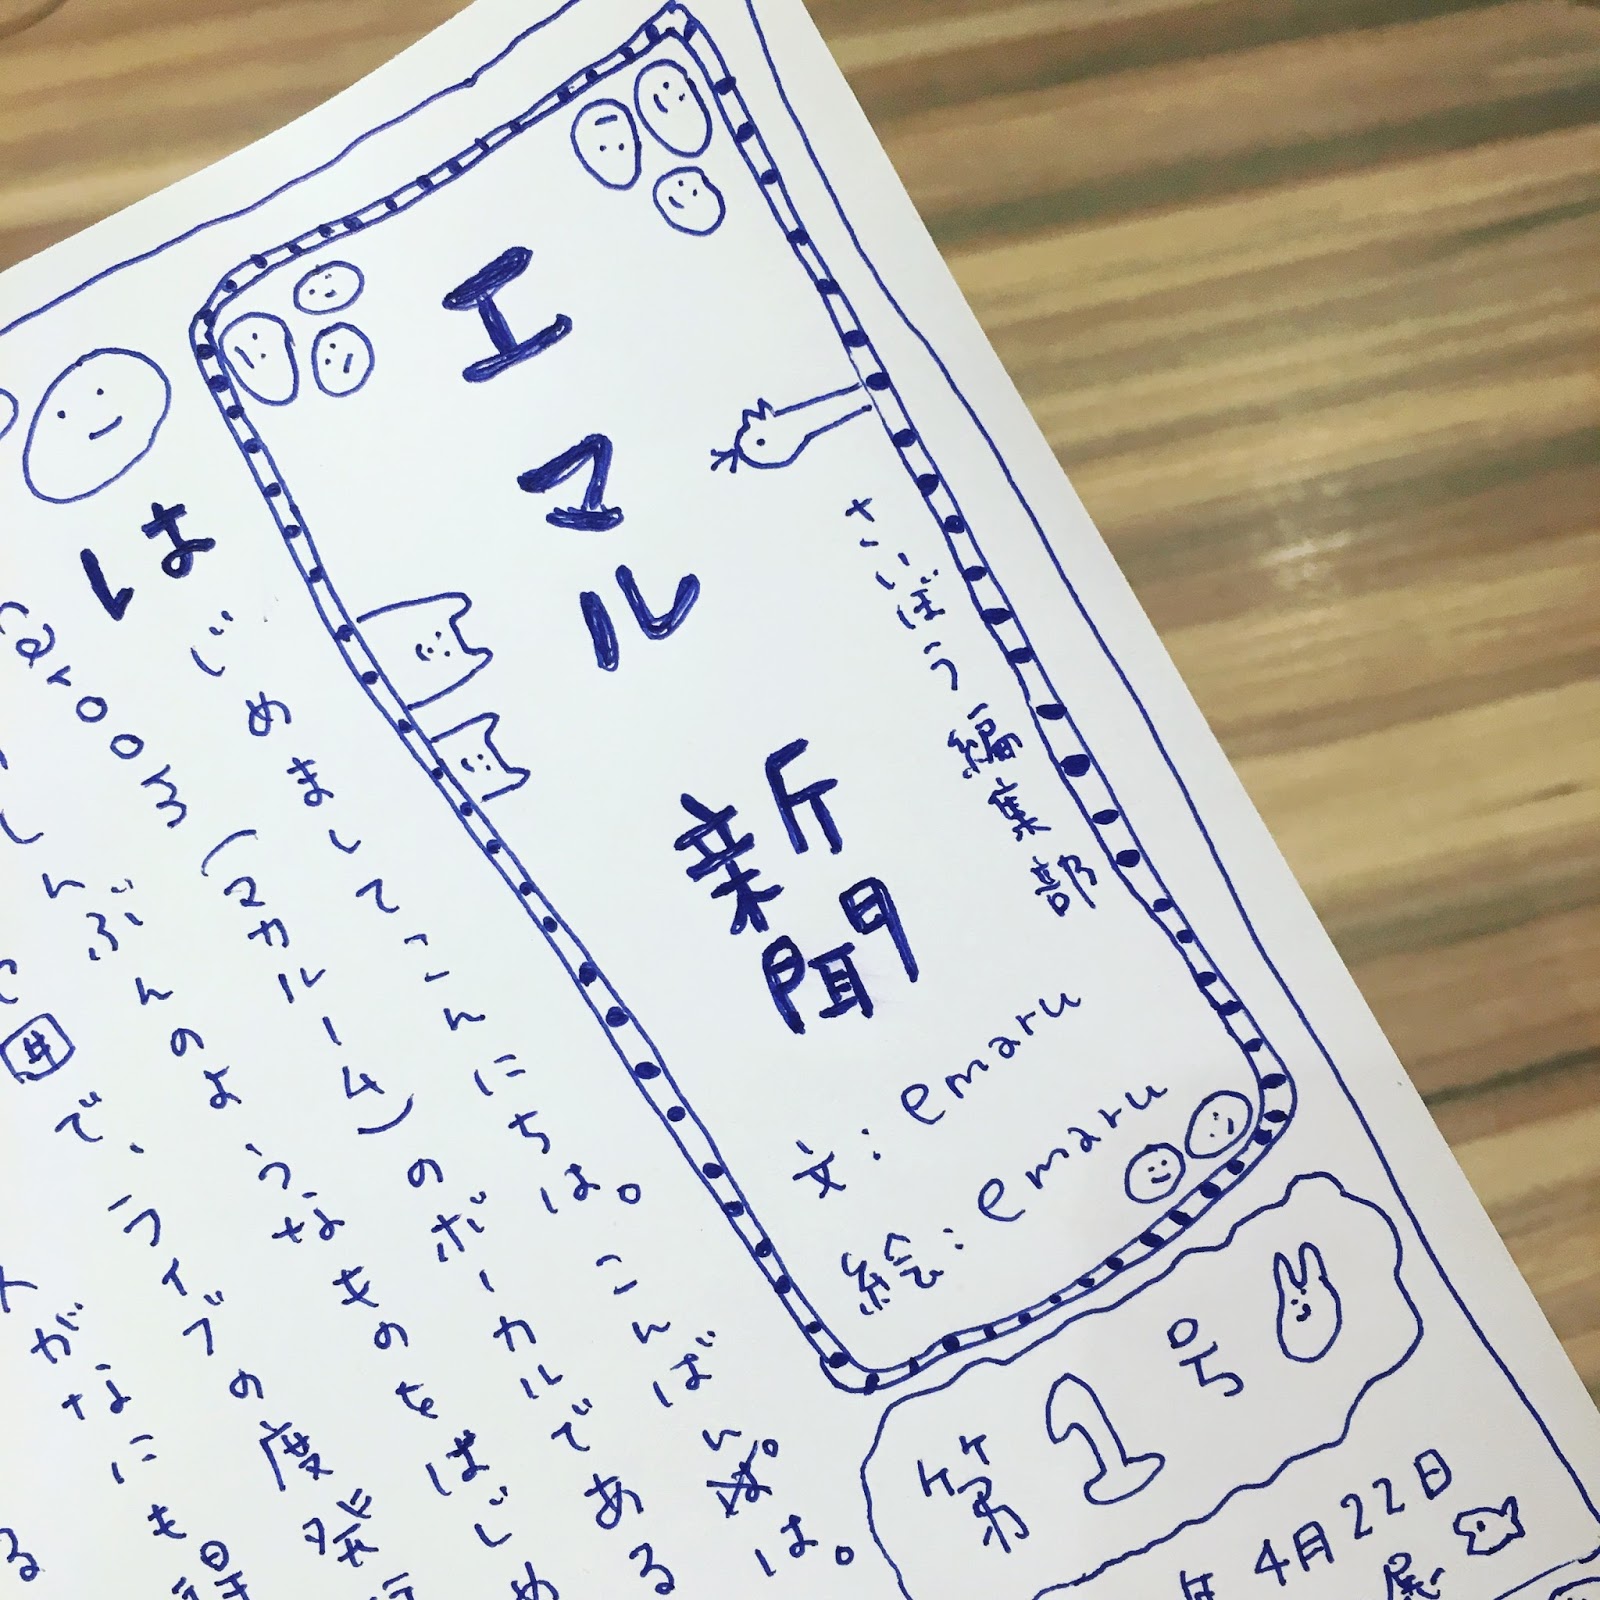 さいぼう編集部
エマル新聞
文：emaru
絵：emaru
第1号
年4月22日
はじめましてこんにちは。こんばんは。
caroom（マカルーム）のボーカルである
しんぶんのようなものをはじめ
で、ライブの度発行
がなにも
る